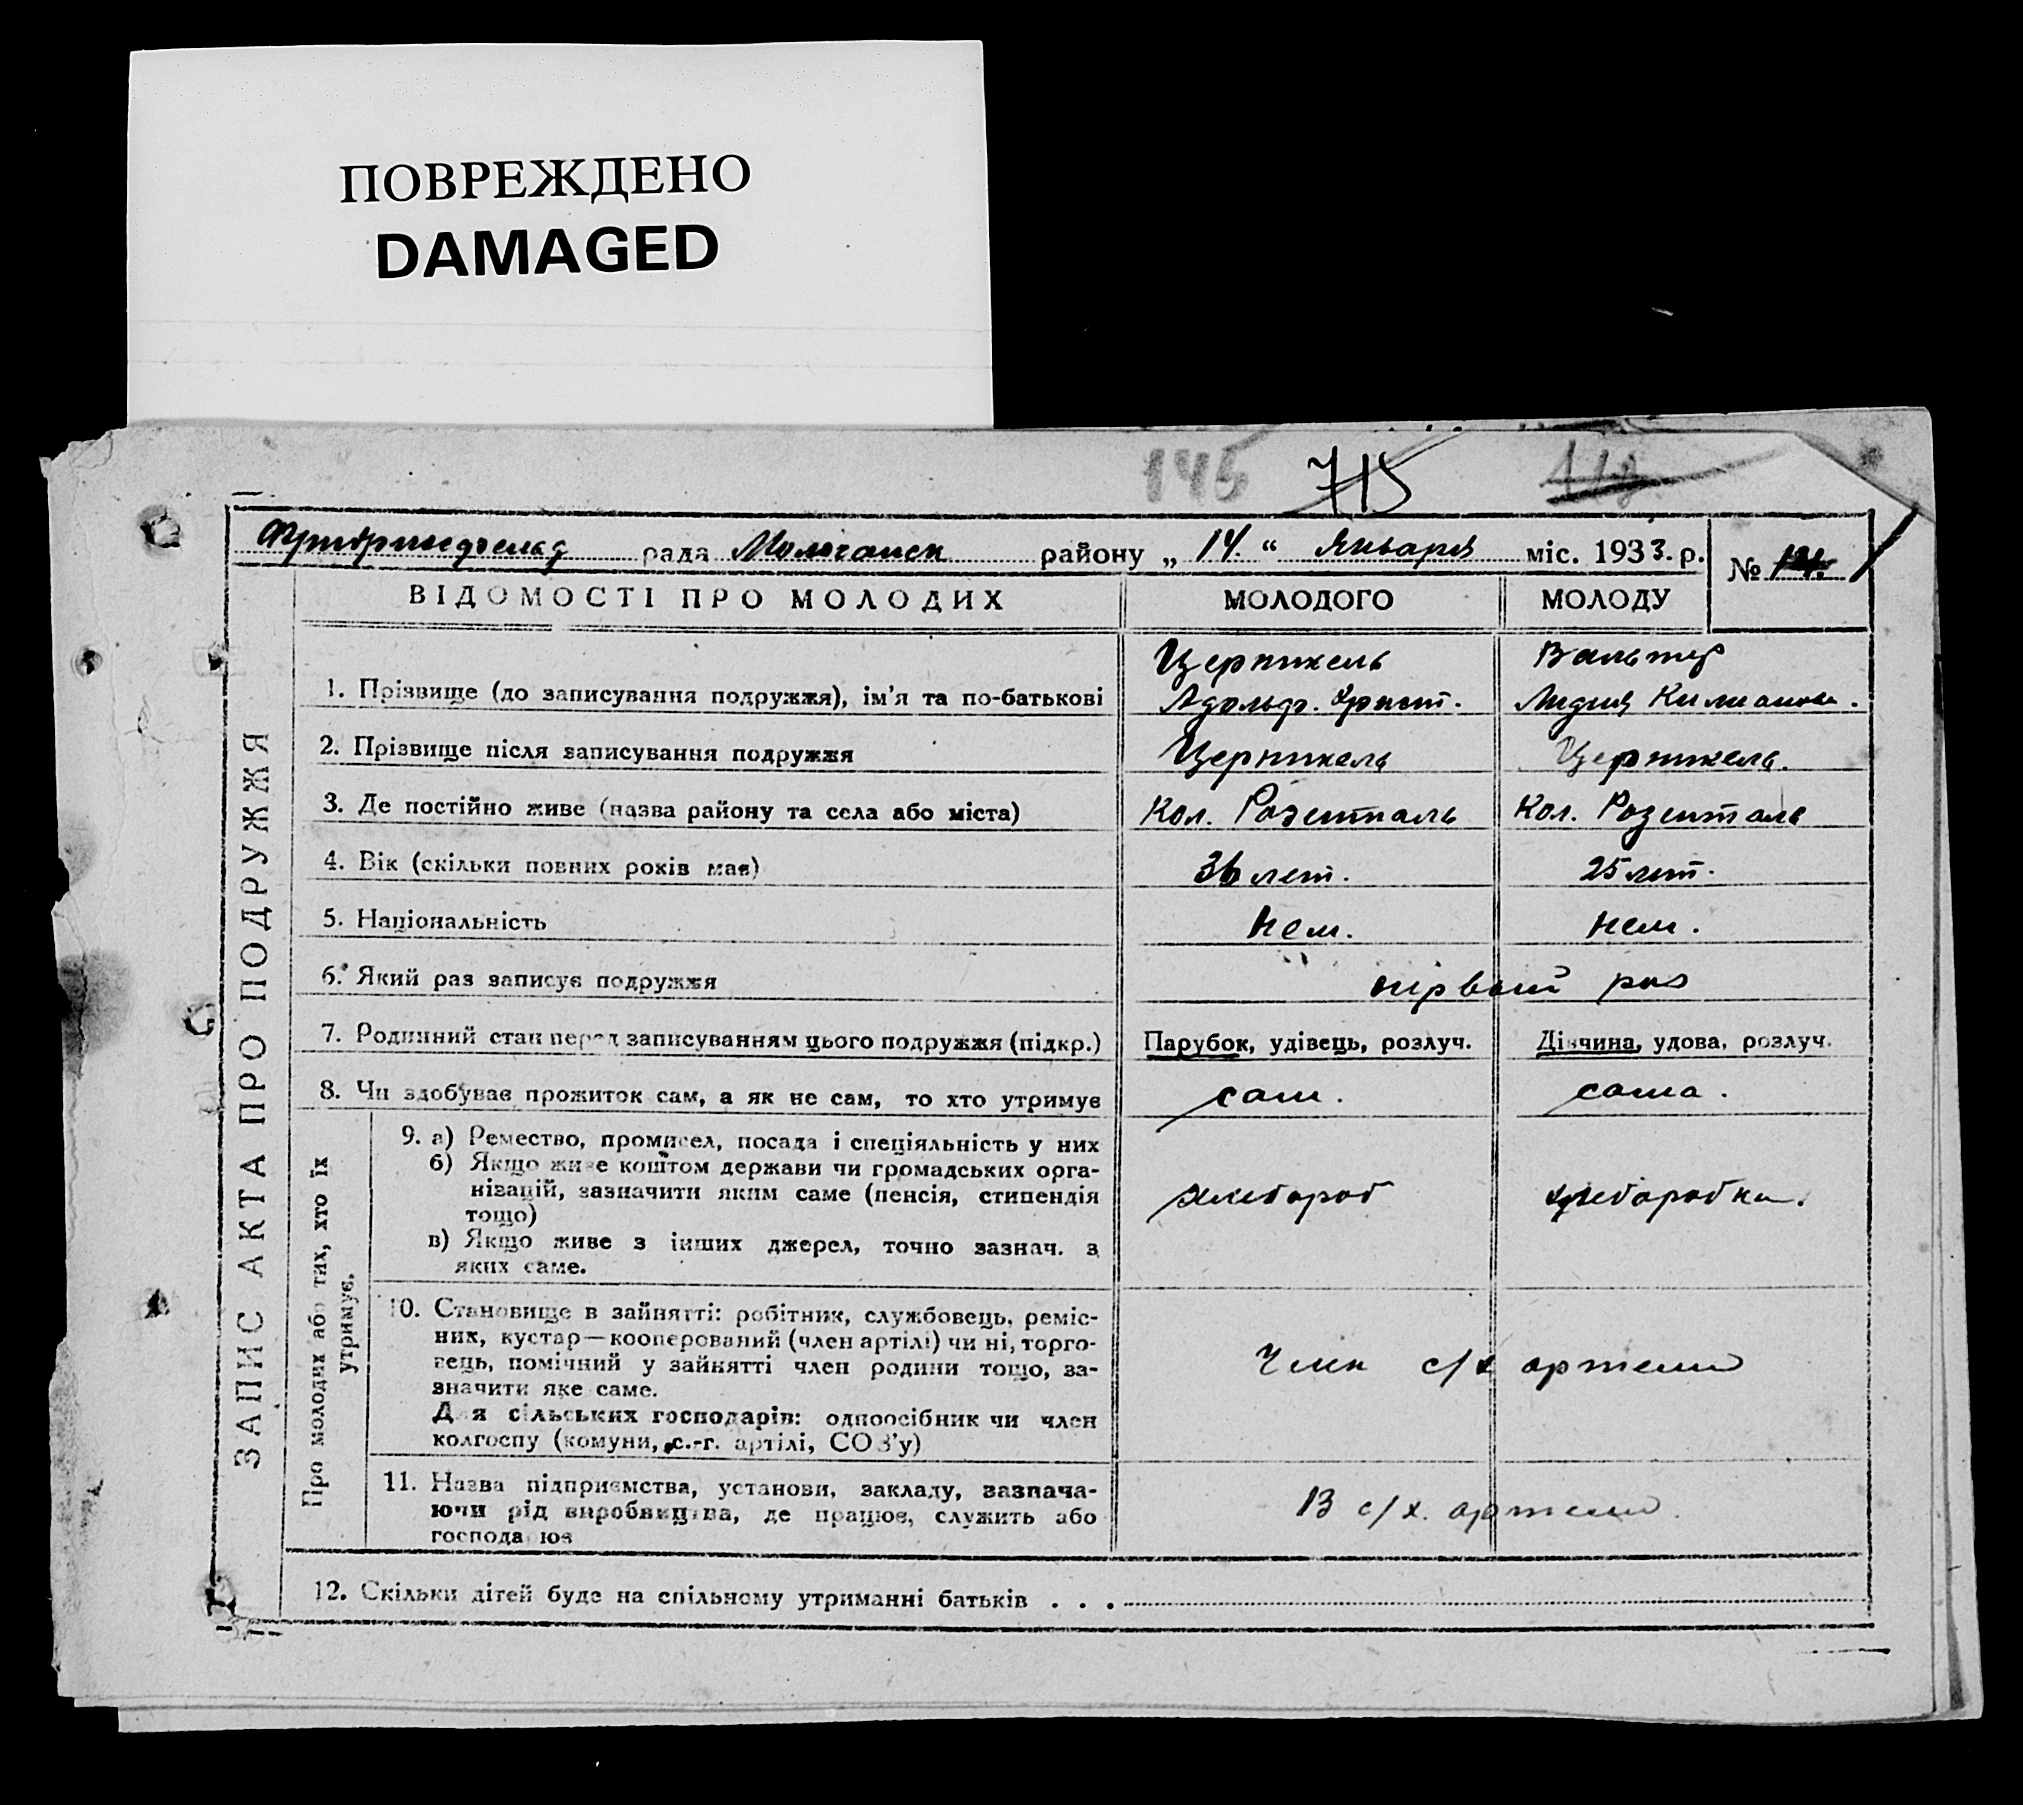 ПОВРЕЖДЕНО
DAMAGED
145 715
рада Молочанск району „ 14. “ Января міс. 1933. р.
№
ВІДОМОСТІ ПРО МОЛОДИХ МОЛОДОГО МОЛОДУ
ЗАПИС АКТА ПРО ПОДРУЖЖЯ
Церникель Вальтер
1. Прізвище (до записування подружжя), ім'я та по-батькові Адольф. Христ. Лидия Килианова.
2. Прізвище після записування подружжя Церникель Церникель.
3. Де постійно живе (назва району та села або міста) Кол. Розенталь Кол. Розенталь
4. Вік (скільки повних років має) 36 лет. 25 лет.
5. Національність нем. нем.
6. Який раз записує подружжя первый раз
7. Родинний стан перед записуванням цього подружжя (підкр.) Парубок, удівець, розлуч. Дівчина, удова, розлуч.
8. Чи здобуває прожиток сам, а як не сам, то хто утримує сам. сама.
Про молодих або тих, хто їх
утримує.
9. а) Ремество, промисел, посада і спеціяльність у них
б) Якщо живе коштом держави чи громадських орга-
нізацій, зазначити яким саме (пенсія, стипендія
тощо)
в) Якщо живе з інших джерел, точно зазнач. з
яких саме.
хлебороб хлеборобка.
10. Становище в зайнятті: робітник, службовець, реміс-
ник, кустар—кооперований (член артілі) чи ні, торго-
вець, помічний у зайнятті член родини тощо, за-
значити яке саме.
Для сільських господарів: одноосібник чи член
колгоспу (комуни, с.-г. артілі, СОЗ'у)
Член с/х артели
11. Назва підприємства, установи, закладу, зазнача-
ючи рід виробництва, де працює, служить або
господарює
В с/х. артели.
12. Скільки дітей буде на спільному утриманні батьків . . .